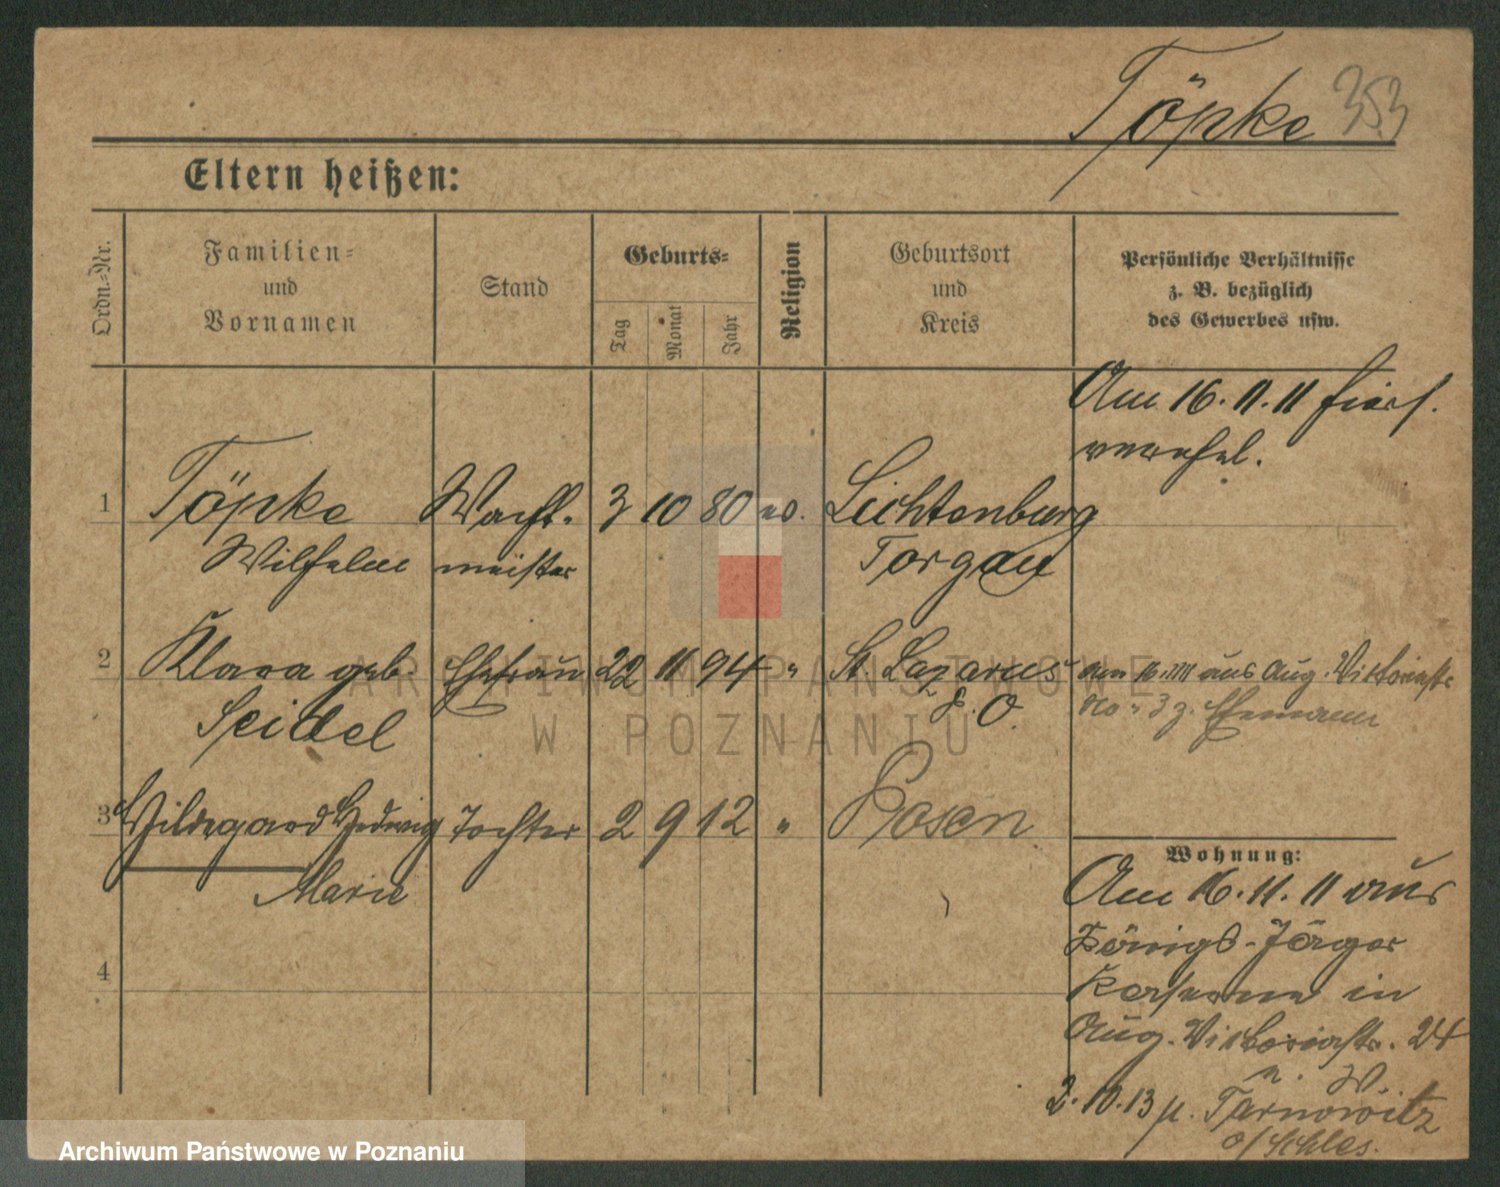 Töpke 353
Eltern heißen:
Ordn.-Nr.
Familien=
und
Vornamen
Stand
Geburts=
Tag
Monat
Jahr
Religion
Geburtsort
und
Kreis
Persönliche Verhältnisse
z. B. bezüglich
des Gewerbes usw.
Am 16.11.11 hiers.
verehel.
1 Töpke Wacht- 3 10 80 ev. Lichtenburg
Wilhelm meister Torgau
2 Klara geb. Ehefrau 22 11 94 " St. Lazarus am aus Aug. Viktoriastr
Seidel P. O. No 3 z. Ehemann
3 Hildegard Hedwig Tochter 2 9 12 " Posen
Marie
4
Wohnung:
Am 16.11.11 aus
Königs-Jäger
Kaserne in
Aug. Viktoriastr. 24
n. W.
2.10.13 n. Tarnowitz
o/Schles.
ARCHIWUM PAŃSTWOWE
W POZNANIU
Archiwum Państwowe w Poznaniu